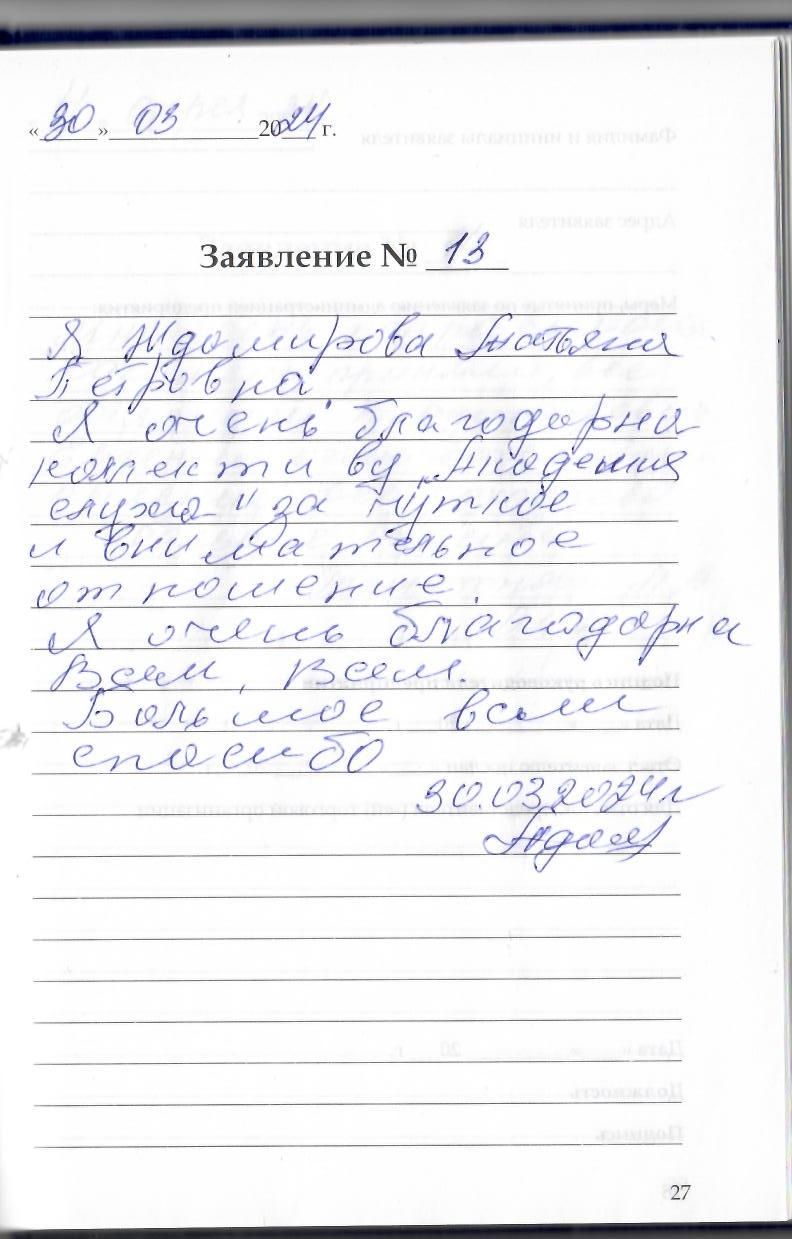 «30» 03 2024 г.
Заявление № 13
Я Ждамирова Татьяна
Петровна.
Я очень благодарна
коллективу "Академия
слуха" за чуткое
и внимательное
отношение.
Я очень благодарна
Всем, всем.
Большое всем
спасибо
30.03.2024г
27